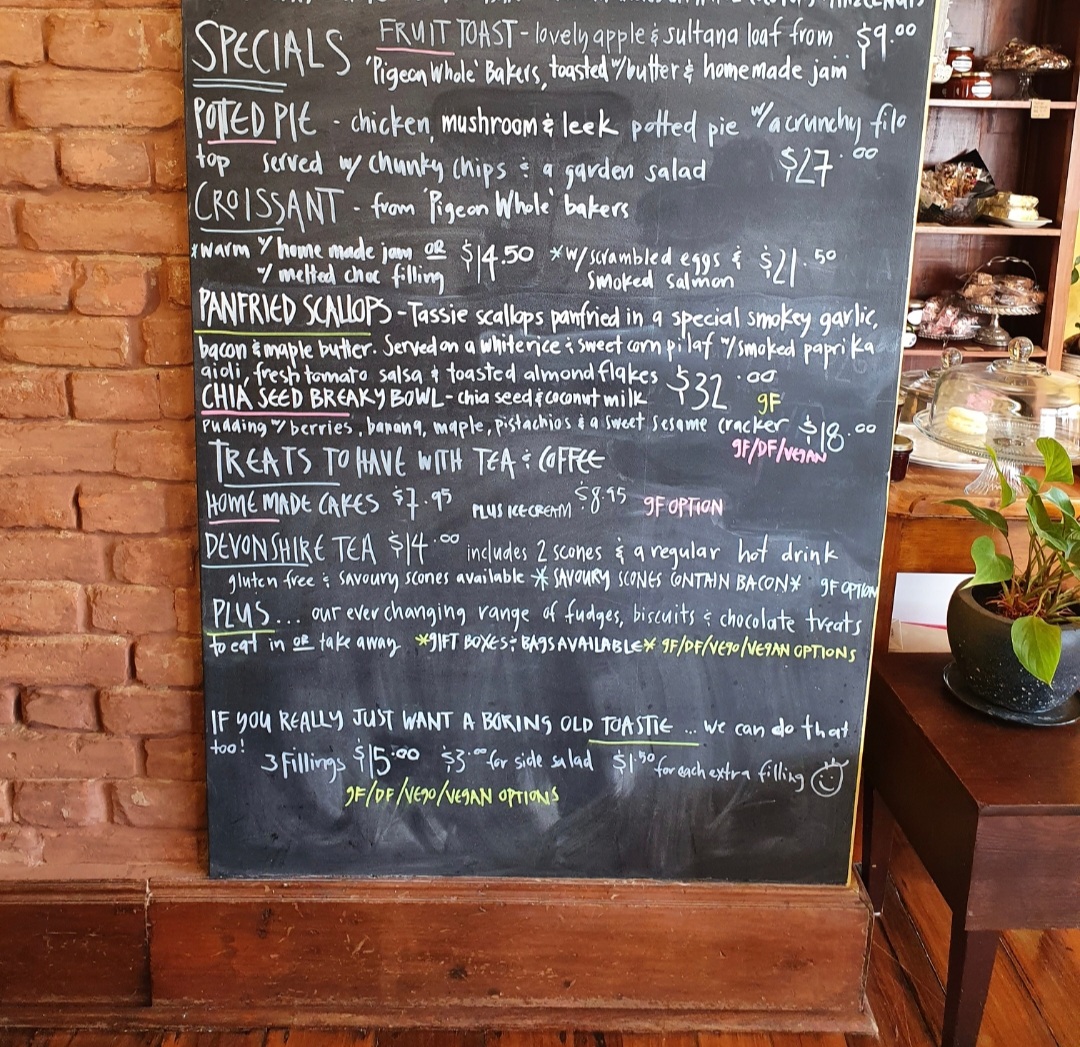 SPECIALS FRUIT TOAST - lovely apple & sultana loaf from $9.00
'Pigeon Whole' Bakers, toasted w/ butter & homemade jam
POTTED PIE - chicken, mushroom & leek potted pie w/ a crunchy filo
top served w/ chunky chips & a garden salad $27.00
CROISSANT - from 'Pigeon Whole' bakers
*warm w/ home made jam OR $14.50 *w/ scrambled eggs & $21.50
w/ melted choc filling smoked salmon
PANFRIED SCALLOPS - Tassie scallops panfried in a special smokey garlic,
bacon & maple butter. Served on a white rice & sweet corn pilaf w/ smoked paprika
aioli, fresh tomato salsa & toasted almond flakes $32.00 gF
CHIA SEED BREAKY BOWL - chia seed & coconut milk
pudding w/ berries, banana, maple, pistachios & a sweet sesame cracker $18.00
gF/DF/VEgAN
TREATS TO HAVE WITH TEA & COFFEE
HOME MADE CAKES $7.95 PLUS ICECREAM $8.95 gF OPTION
DEVONSHIRE TEA $14.00 includes 2 scones & a regular hot drink
gluten free & savoury scones available * SAVOURY SCONES CONTAIN BACON* gF OPTION
PLUS... our ever changing range of fudges, biscuits & chocolate treats
to eat in OR take away *gIFT BOXES & BAgS AVAILABLE* gF/DF/VEgO/VEgAN OPTIONS
IF YOU REALLY JUST WANT A BORING OLD TOASTIE ... we can do that
too!
3 Fillings $15.00 $3.00 for side salad $1.50 for each extra filling
gF/DF/VEgO/VEgAN OPTIONS